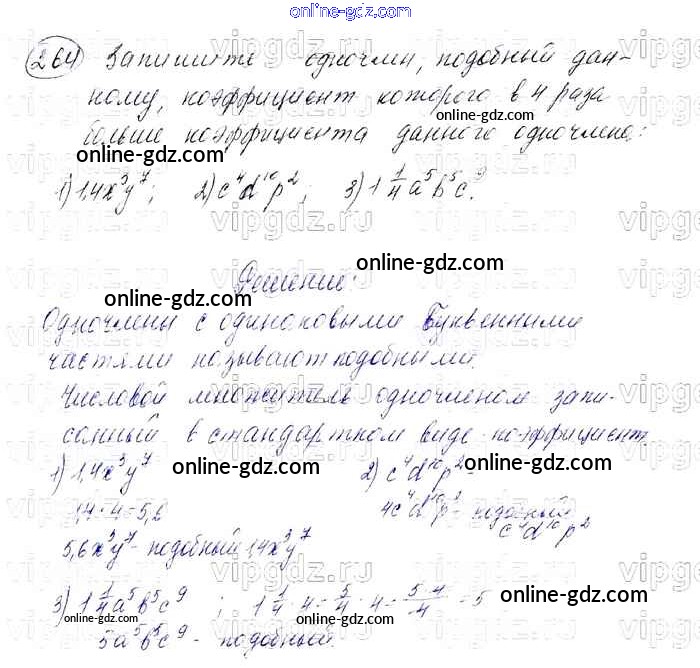 online-gdz.com
264 Запишите одночлен, подобный дан-
ному, коэффициент которого в 4 раза
online-gdz.com
больше коэффициента данного одночлена:
online-gdz.com
1) 1,4x³y⁷; 2) c⁴d¹⁰p²; 3) 1 1/4 a⁵b⁵c⁹.
online-gdz.com
Решение:
online-gdz.com
Одночлены с одинаковыми буквенными
частями называют подобными.
online-gdz.com
Числовой множитель одночленом запи-
санный в стандартном виде - коэффициент
1) 1,4x³y⁷ 2) c⁴d¹⁰p² -
online-gdz.com
1,4·4=5,6 4c⁴d¹⁰p² - подобный
online-gdz.com
c⁴d¹⁰p²
5,6x³y⁷ - подобный 1,4x³y⁷
online-gdz.com
3) 1 1/4 a⁵b⁵c⁹ ; 1 1/4 · 4 = 5/4 · 4 = 5·4/4 = 5
online-gdz.com
5a⁵b⁵c⁹ - подобный.
online-gdz.com